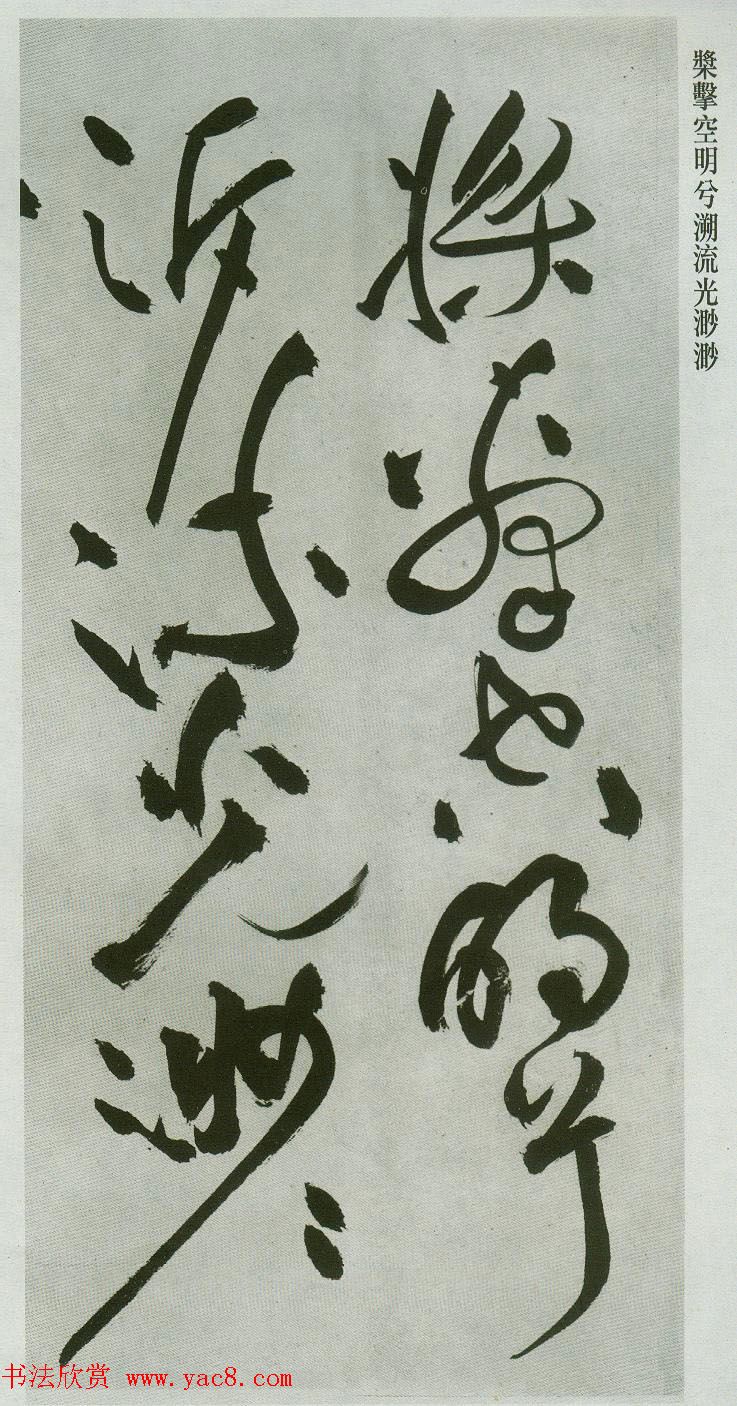 槳擊空明兮溯流光渺渺
槳擊空明兮
泝流光渺〻
书法欣赏 www.yac8.com